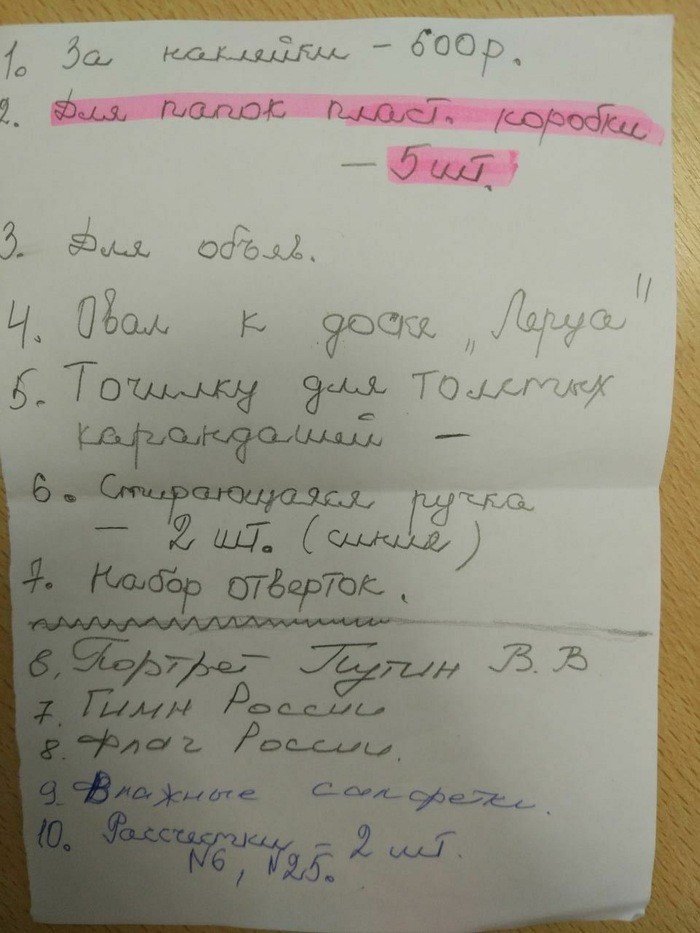 1. За наклейки – 600р.
2. Для папок пласт. коробки
– 5 шт.
3. Для объяв.
4. Овал к доске „Леруа"
5. Точилку для толстых
карандашей –
6. Стирающаяся ручка
– 2 шт. (синие)
7. Набор отверток.
6. Портрет Путин В. В
7. Гимн России
8. Флаг России.
9. Влажные салфетки.
10. Рассчестки – 2 шт.
№6, №25.